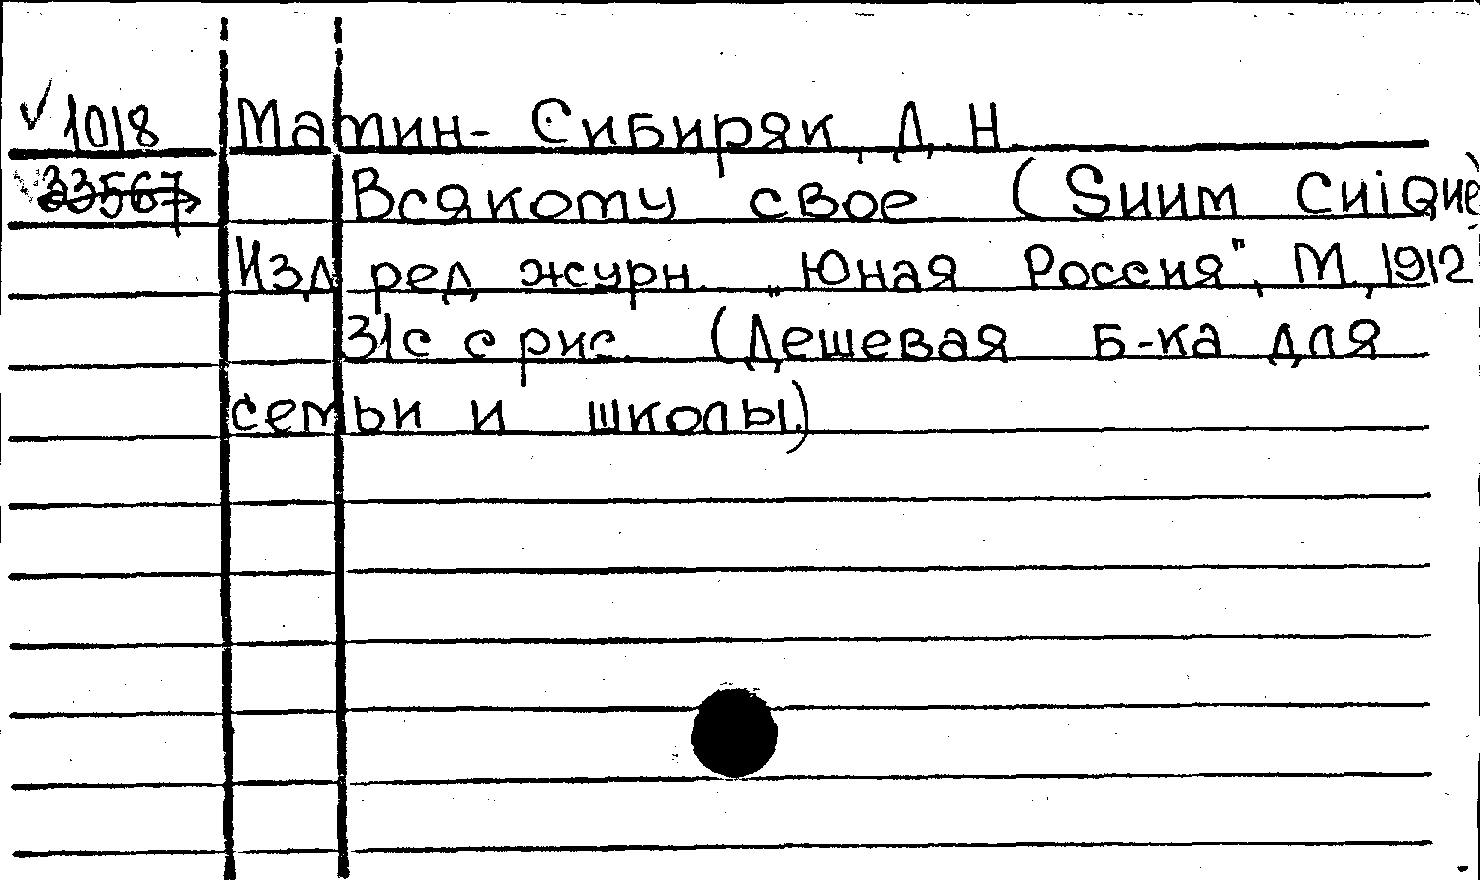 ✓ 1018 Мамин-Сибиряк, Д. Н.
33567 Всякому свое (Suum Cuique)
Изд. ред. журн. „Юная Россия", М., 1912
31с с рис. (Дешевая Б-ка для
семьи и школы.)